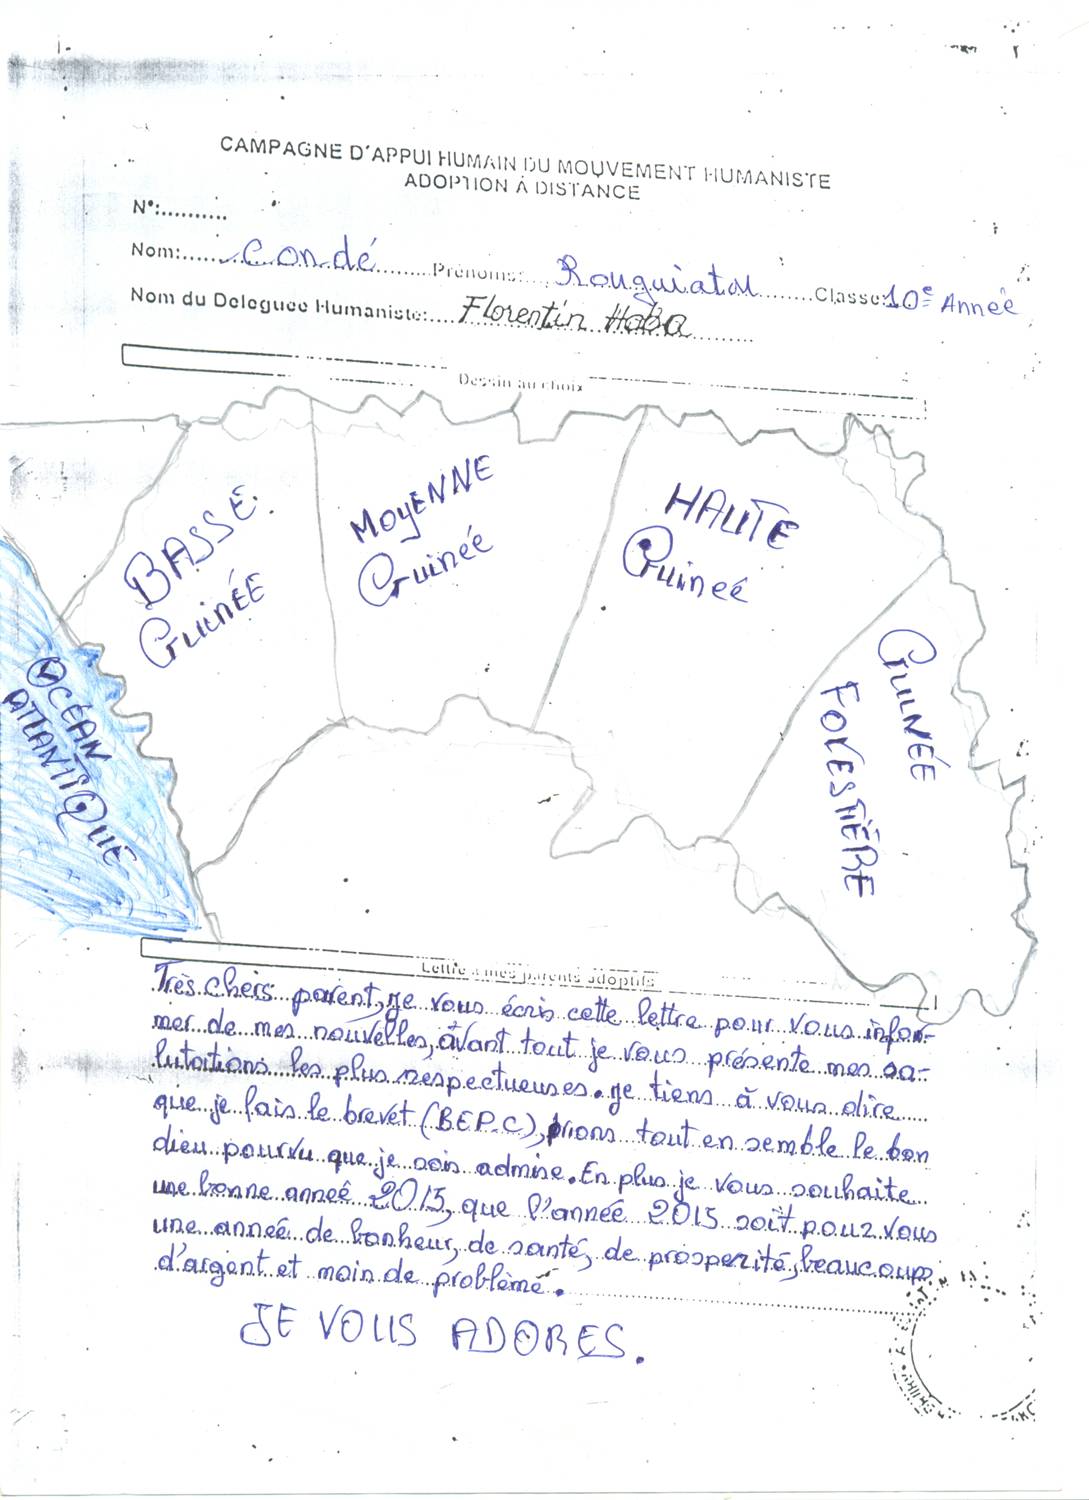 CAMPAGNE D'APPUI HUMAIN DU MOUVEMENT HUMANISTE
ADOPTION À DISTANCE
N°:..........
Nom:......Condé.......Prénoms:...Rouguiatou.......Classe:10e Année
Nom du Deleguee Humaniste:....Florentin HaBa.........
Dessin au choix
BASSE.
GuinÉE
MoyENNE
Guineé
HAUTE
Guineé
GuiNÉE
FORESTIÈRE
OCÉAN
ATLANTIQUE
Lettre a mes parents adoptifs
Très chers parent, je vous écris cette lettre pour vous infor-
mer de mes nouvelles, avant tout je vous présente mes sa-
lutations les plus respectueuses. je tiens à vous dire
que je fais le brevet (B.E.P.C), prions tout en semble le bon
dieu pourvu que je sois admise. En plus je vous souhaite
une bonne anneé 2015, que l'année 2015 soit pour vous
une anneé de bonheur, de santé, de prosperité, beaucoup
d'argent et moin de problèmé.
JE VOUS ADORES.